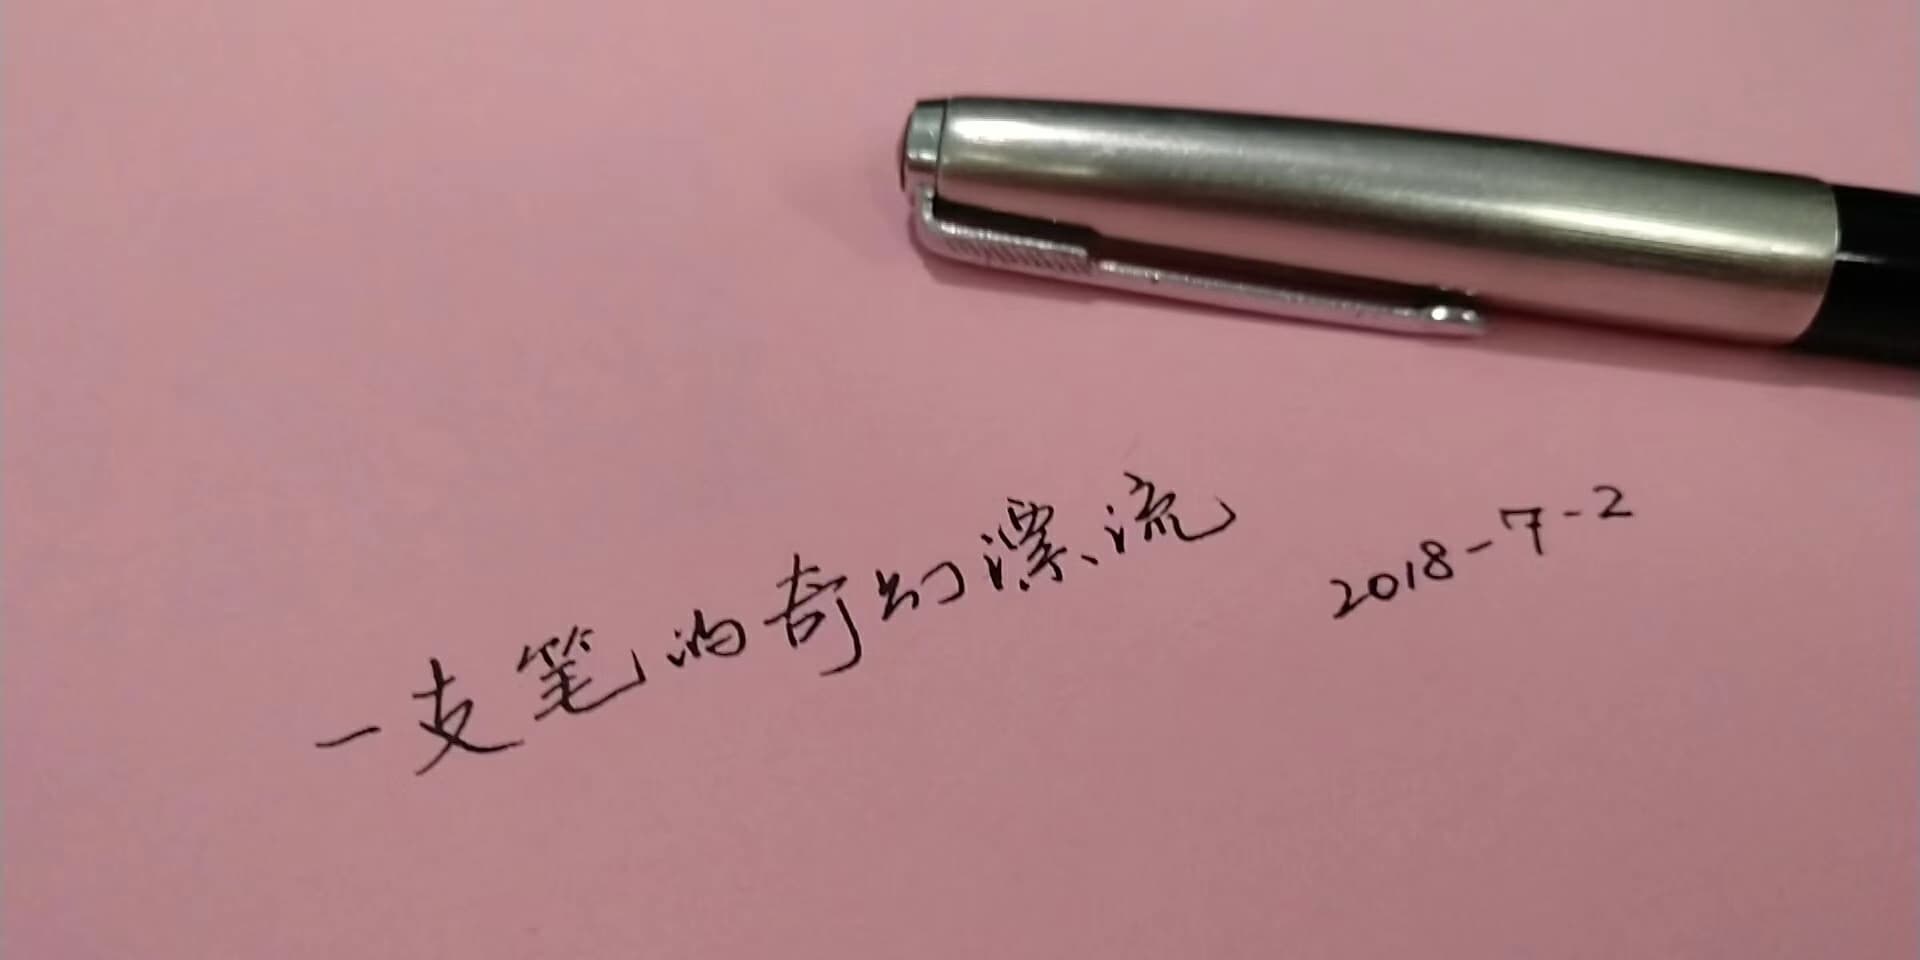 一支笔的奇幻漂流 2018-7-2